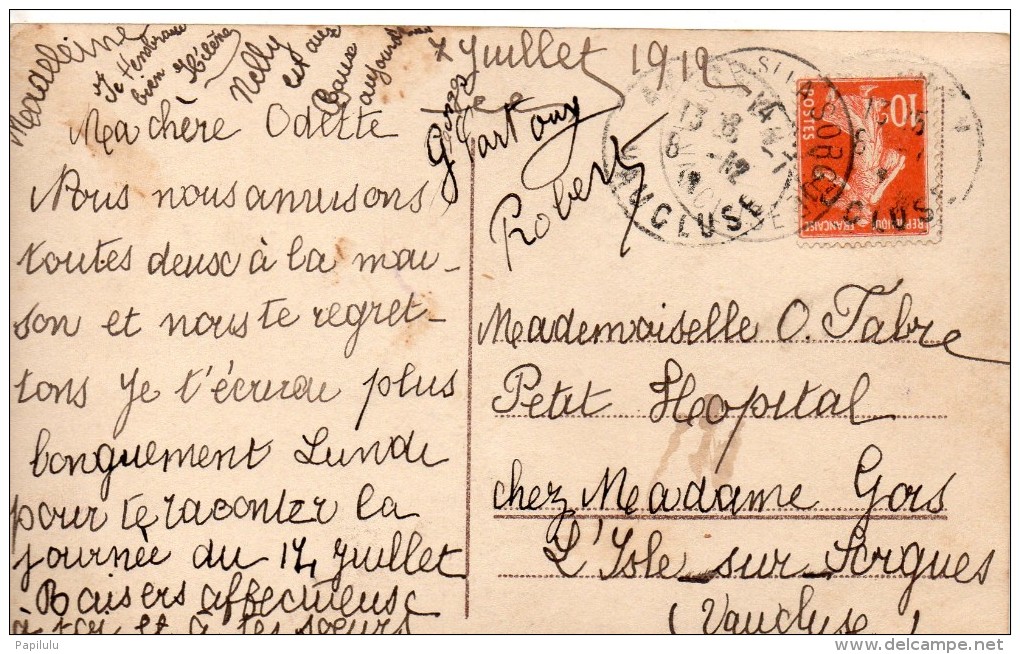 Madeleine
Je t'embrasse
bien Hélène
Nelly
est aux
aujourd'hui
7 Juillet 1912
Ma chère Odette
Nous nous amusons
toutes deusc à la mai-
son et nous te regret-
tons Je t'écrirai plus
longuement Lundi
pour te raconter la
journée du 14 Juillet
Baisers affectueusc
à toi et à tes soeurs
Robert
VAUCLUSE
10
POSTES
REPUBLIQUE FRANCAISE
Mademoiselle O. Fabre
Petit Hopital
chez Madame Gors
L'Isle-sur-Sorgues
(Vaucluse)
Papilulu
delcampe.net